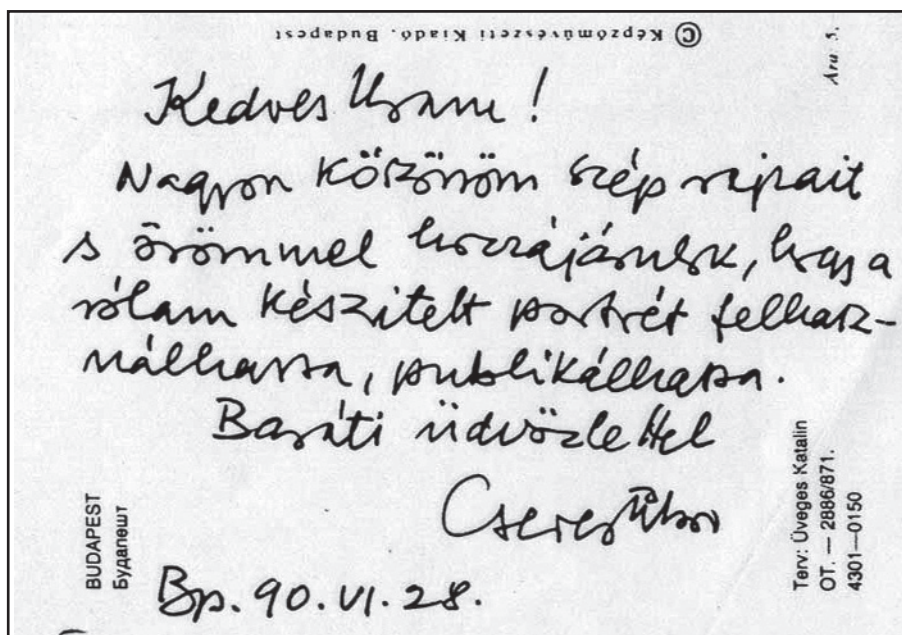 © Képzőművészeti Kiadó. Budapest
Ára 3.
Kedves Uram!
Nagyon köszönöm szép rajzait
s örömmel hozzájárulok, hogy a
rólam készitett portrét felhasz-
nálhassa, publikálhassa.
Baráti üdvözlettel
Cseres Tibor
Bp. 90. VI. 28.
BUDAPEST
Будапешт
Terv: Üveges Katalin
OT. — 2886/871.
4301—0150